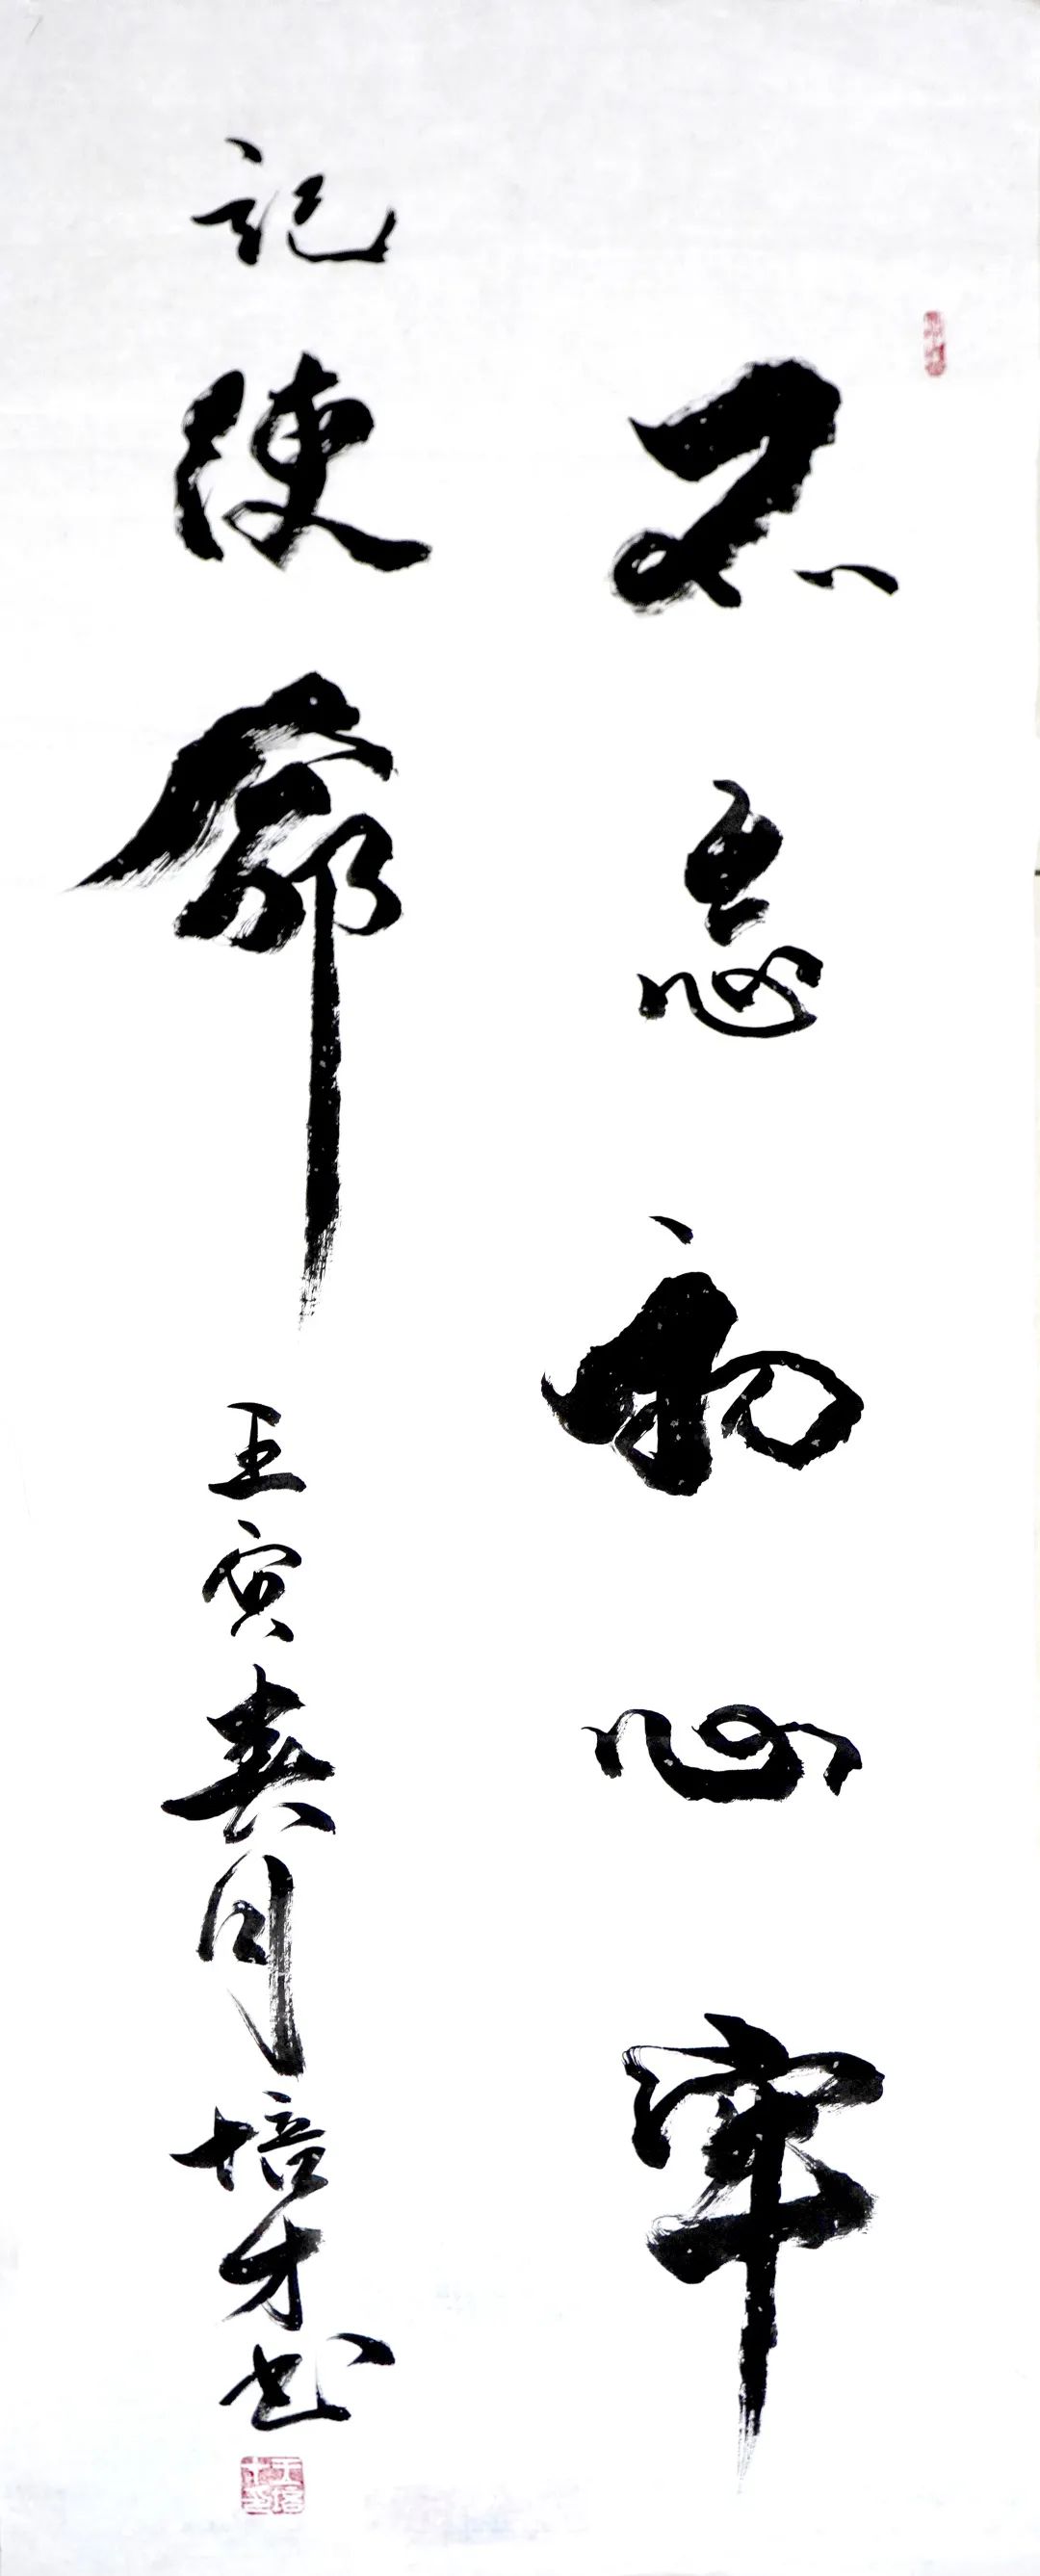 不忘初心牢
記使命
壬寅春月培才书